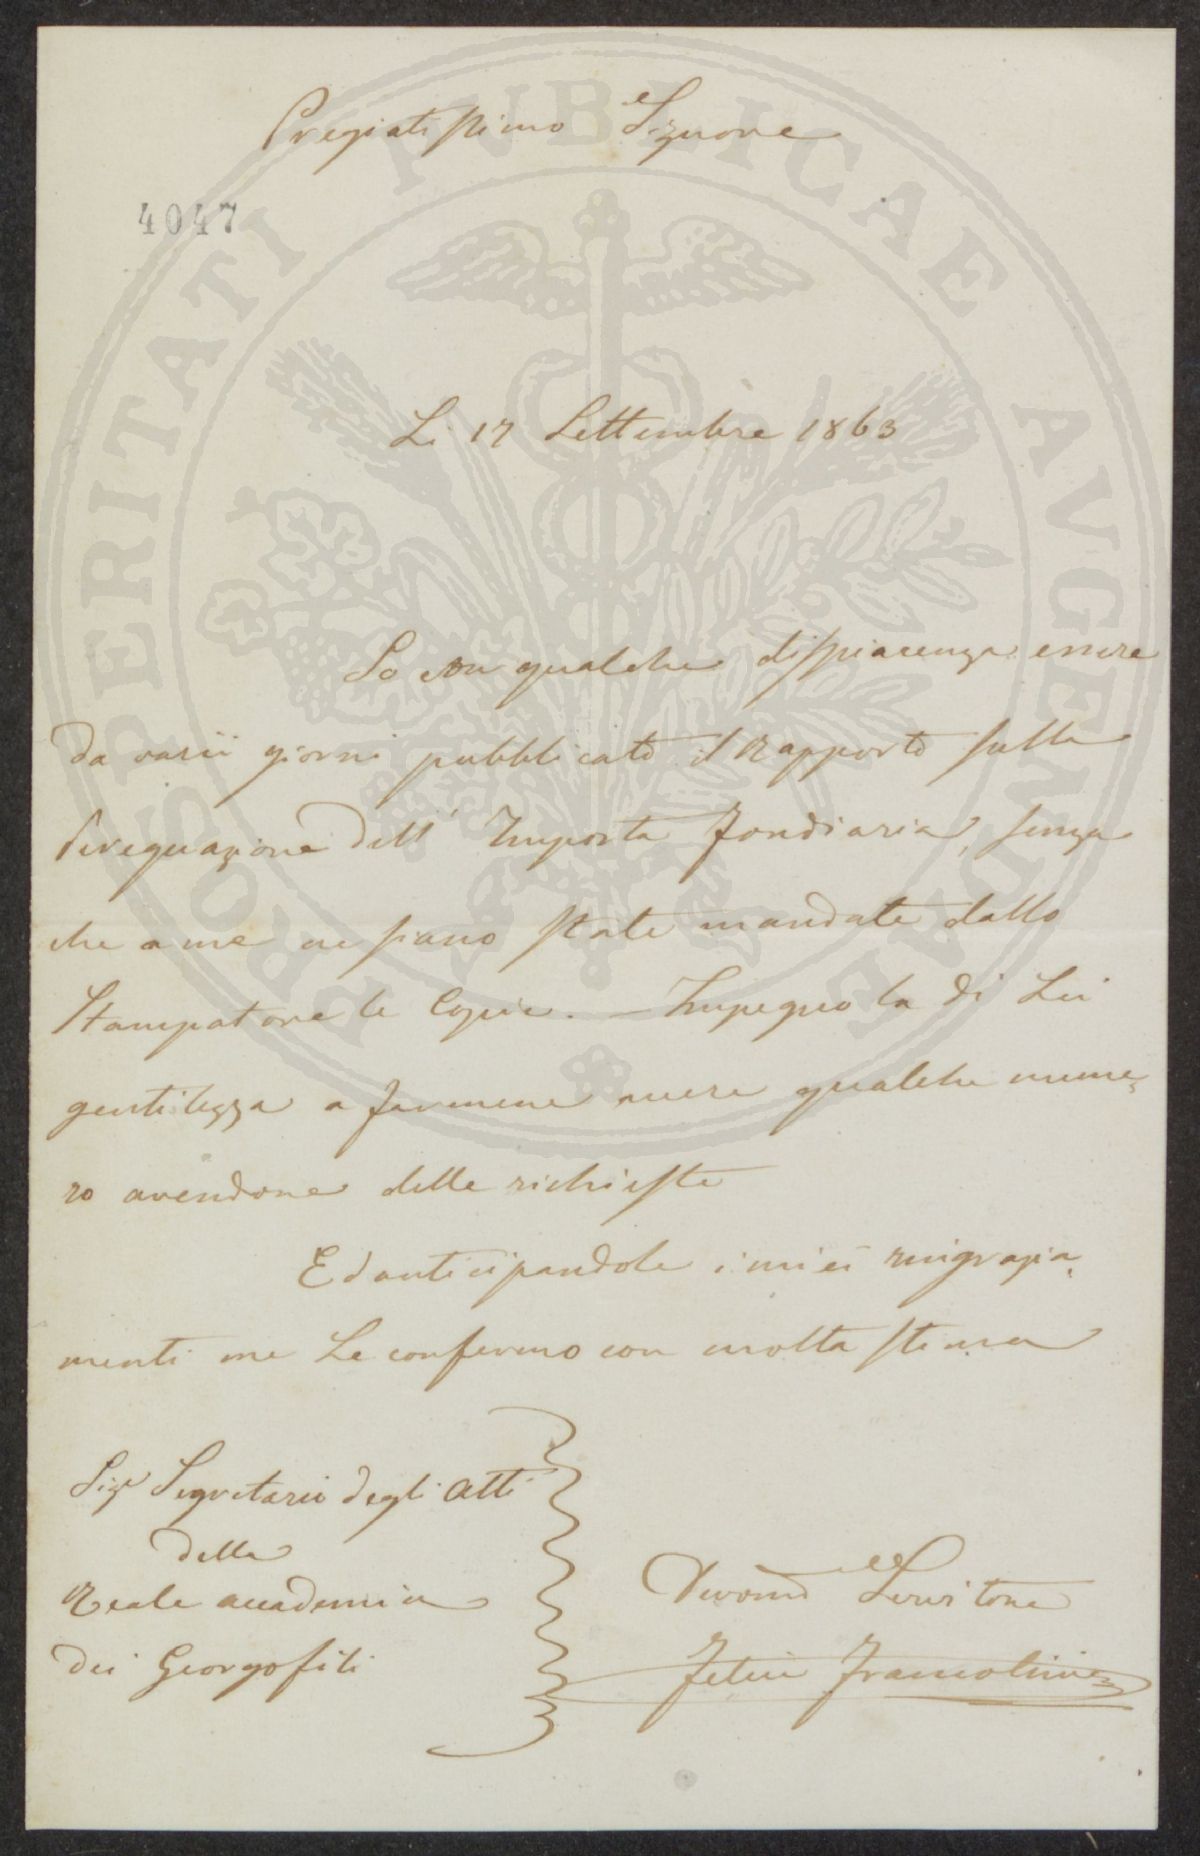 Pregiatissimo Signore
4047
Li 17 Settembre 1863
So con qualche dispiacenza essere
da varii giorni pubblicato il Rapporto sulla
Perequazione dell' Imposta Fondiaria, senza
che a me ne siano state mandate dallo
Stampatore le Copie. — Impegno la di Lei
gentilezza a farmene avere qualche nume=
ro avendone delle richieste
Ed anticipandole i miei ringrazia=
menti me Le confermo con molta stima
Sigr Segretario degli Atti
della
Reale accademia
dei Georgofili
Devomo Servitore
Felice Francolini
PROSPERITATI PUBLICAE AVGENDAE